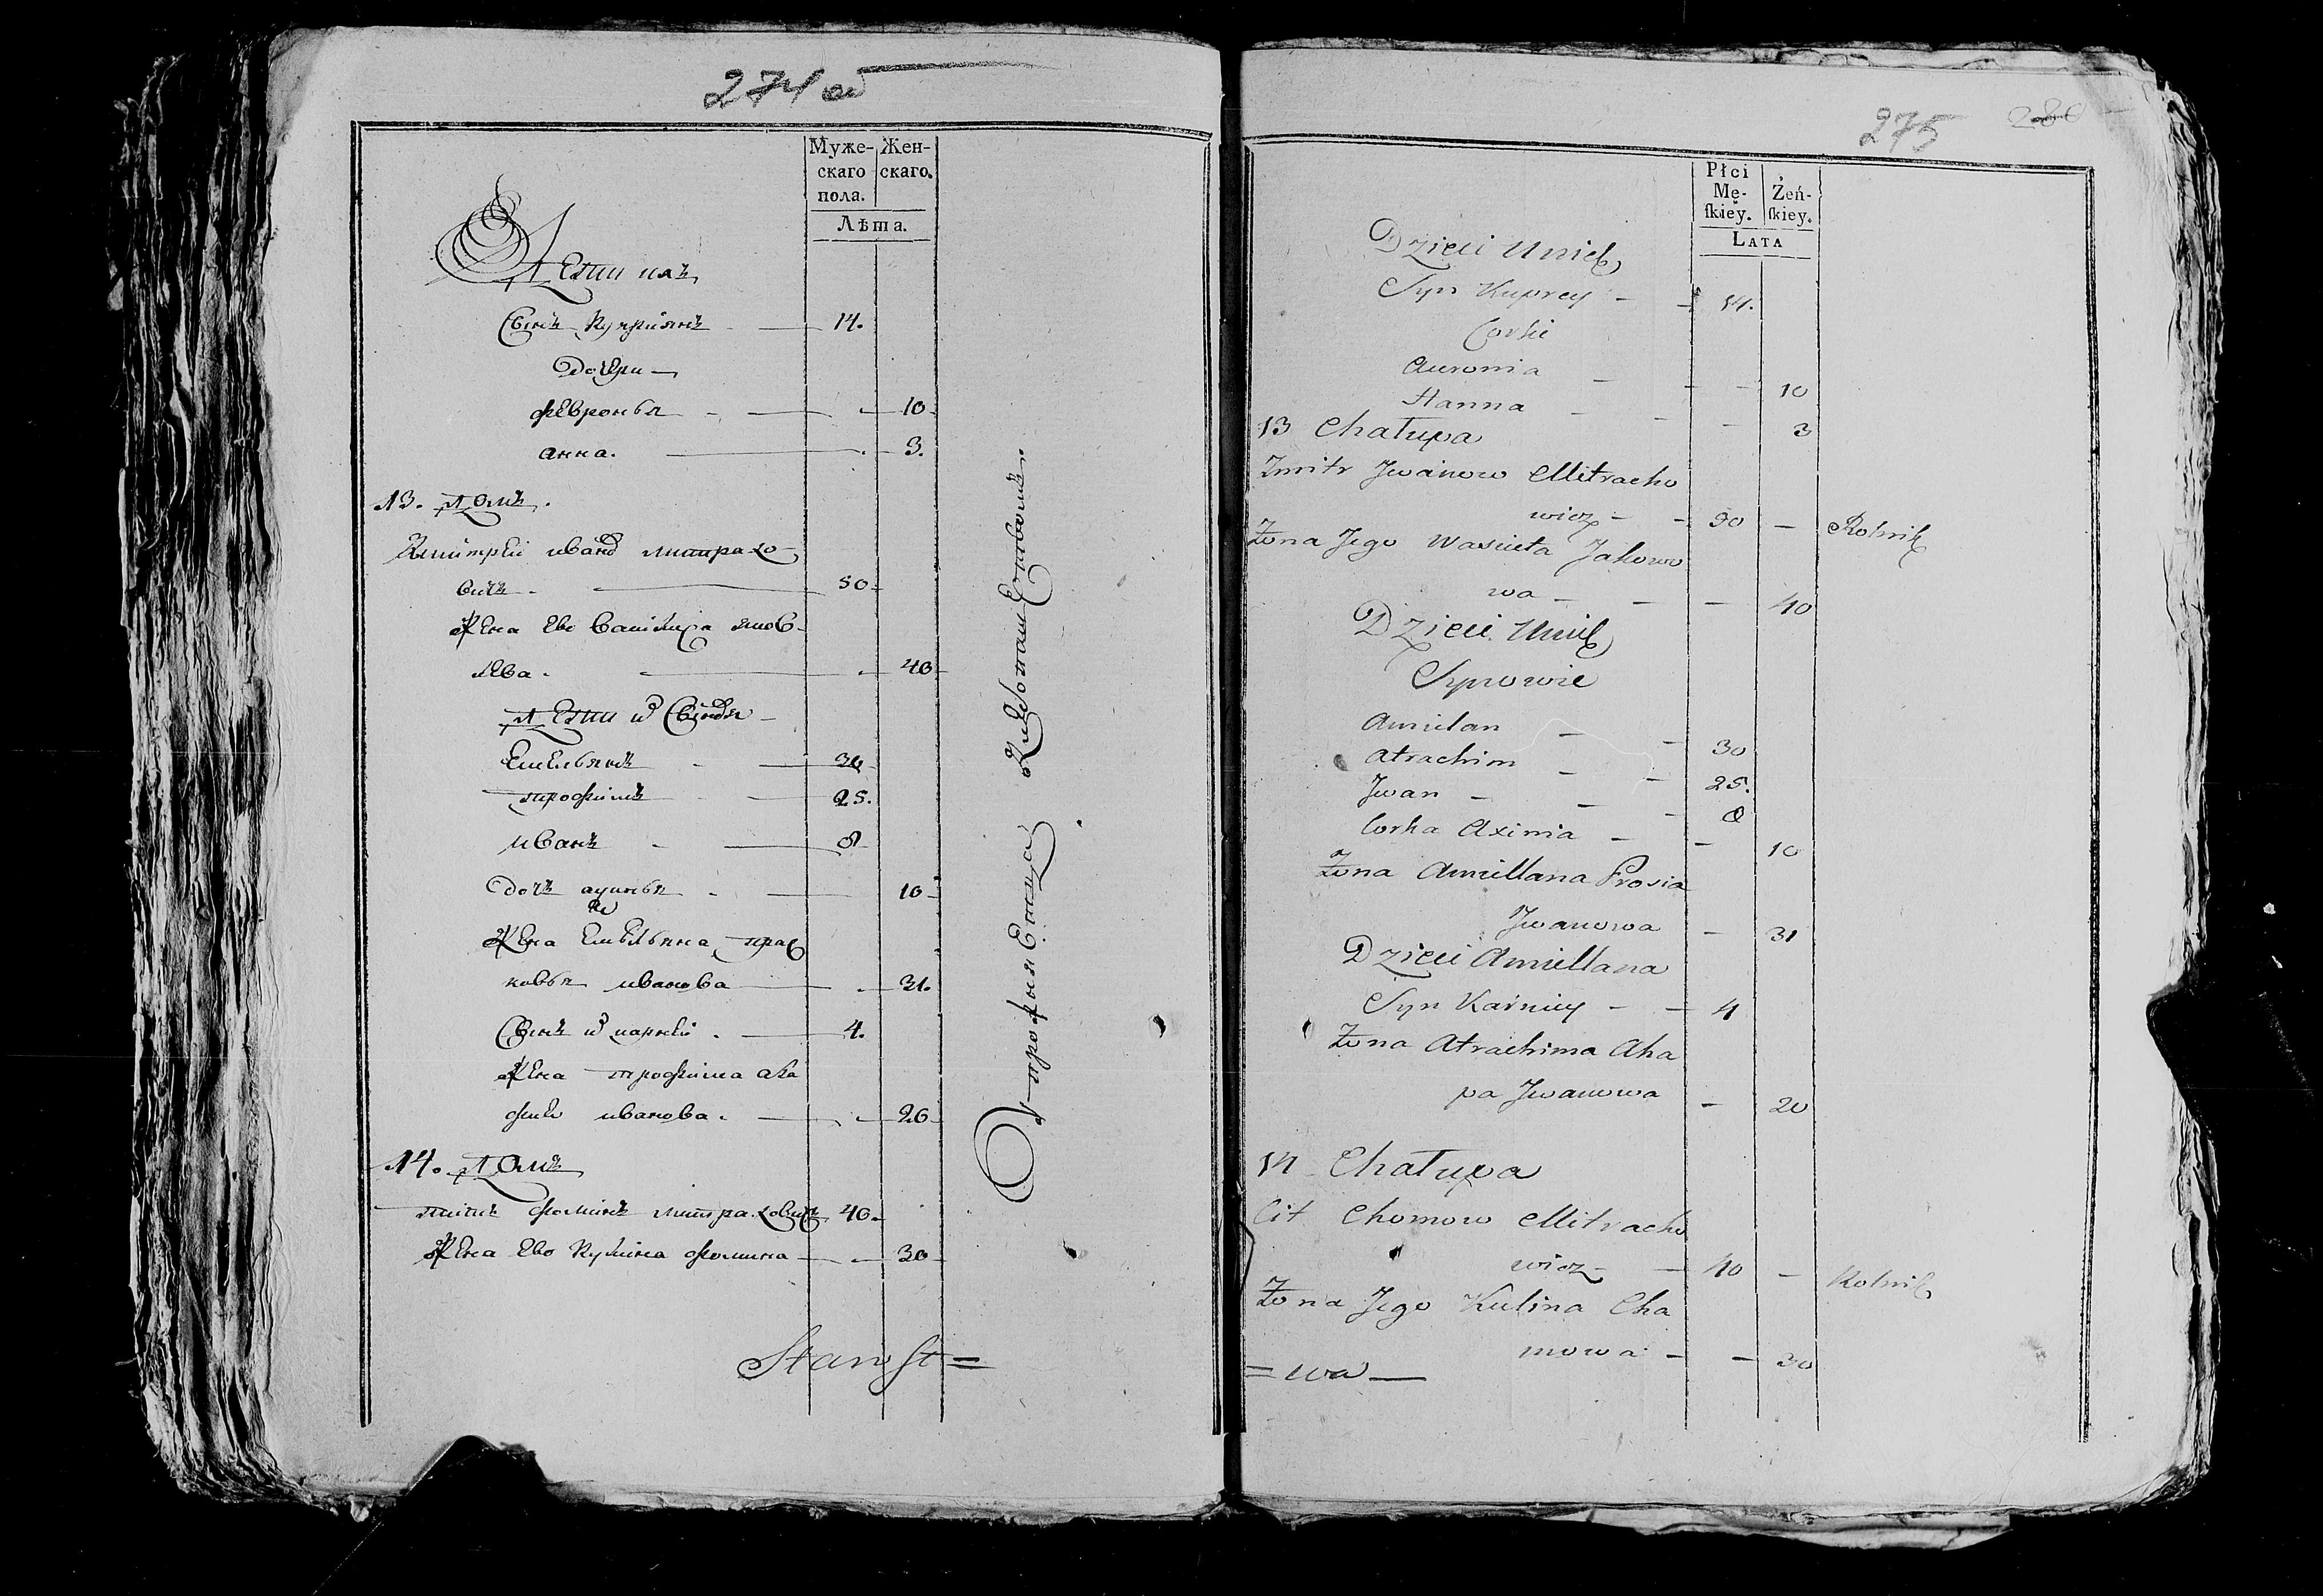 274 об
Муже-
скаго
пола.
Жен-
скаго.
Лѣта.
Дети ихъ
Сынъ Куприянъ 14.
Дочери
Февронья 10
анна. 3.
13. Домъ.
Змитрей иванов митрахо-
вичъ 50
Жена Ево Васи Яков-
лева. 40
Дети их Сыновья
Емельянъ 30
трофимъ 25.
иванъ 8
Дочь аүинья 10
Жена Емельяна прас
ковья иванова 31.
Сынъ их карней. 4.
Жена трофима ага
фия иванова. 20
14. Домъ
титъ фоминъ митраховичъ 40.
Жена Ево Кулина фомина 30
Stanst =
275
280
Płci
Mę-
ſkiey.
Żeń-
ſkiey.
LATA
Dzieci Unich
Syn Kuprey - - 14.
Corki
Auronia - - - 10
Hanna - - - 3
13 Chałupa
Zmitr Jwanow Mitracho
wicz - - 50 - Rolnik
Żona Jego Wasiuta Jakowo
wa - - - 40
Dzieci Unich
Synowie
Amielan - - 30
Atrachim - - 25.
Jwan - - - 8
Corka Axinia - - 10
Żona Amiellana Prosia
Jwanowa - 31
Dzieci Amiellana
Syn Karniey - - 4
Żona Atrachima Aha
pa Jwanowa - 20
14 Chałupa
Cit Chomow Mitracho
wicz - - 40 - Rolnik
Żona Jego Kulina Cha
mowa - - 30
= wa —